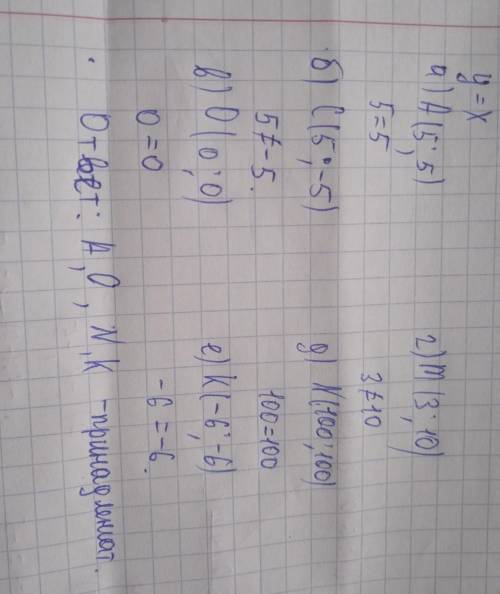 y = x
а) A (5; 5)
5 = 5
б) C (5; -5)
5 ≠ -5.
в) O (0; 0)
0 = 0
г) M (3; 10)
3 ≠ 10
д) N (100; 100)
100 = 100
е) K (-6; -6)
-6 = -6.
Ответ: A, O, N, K - принадлежат.